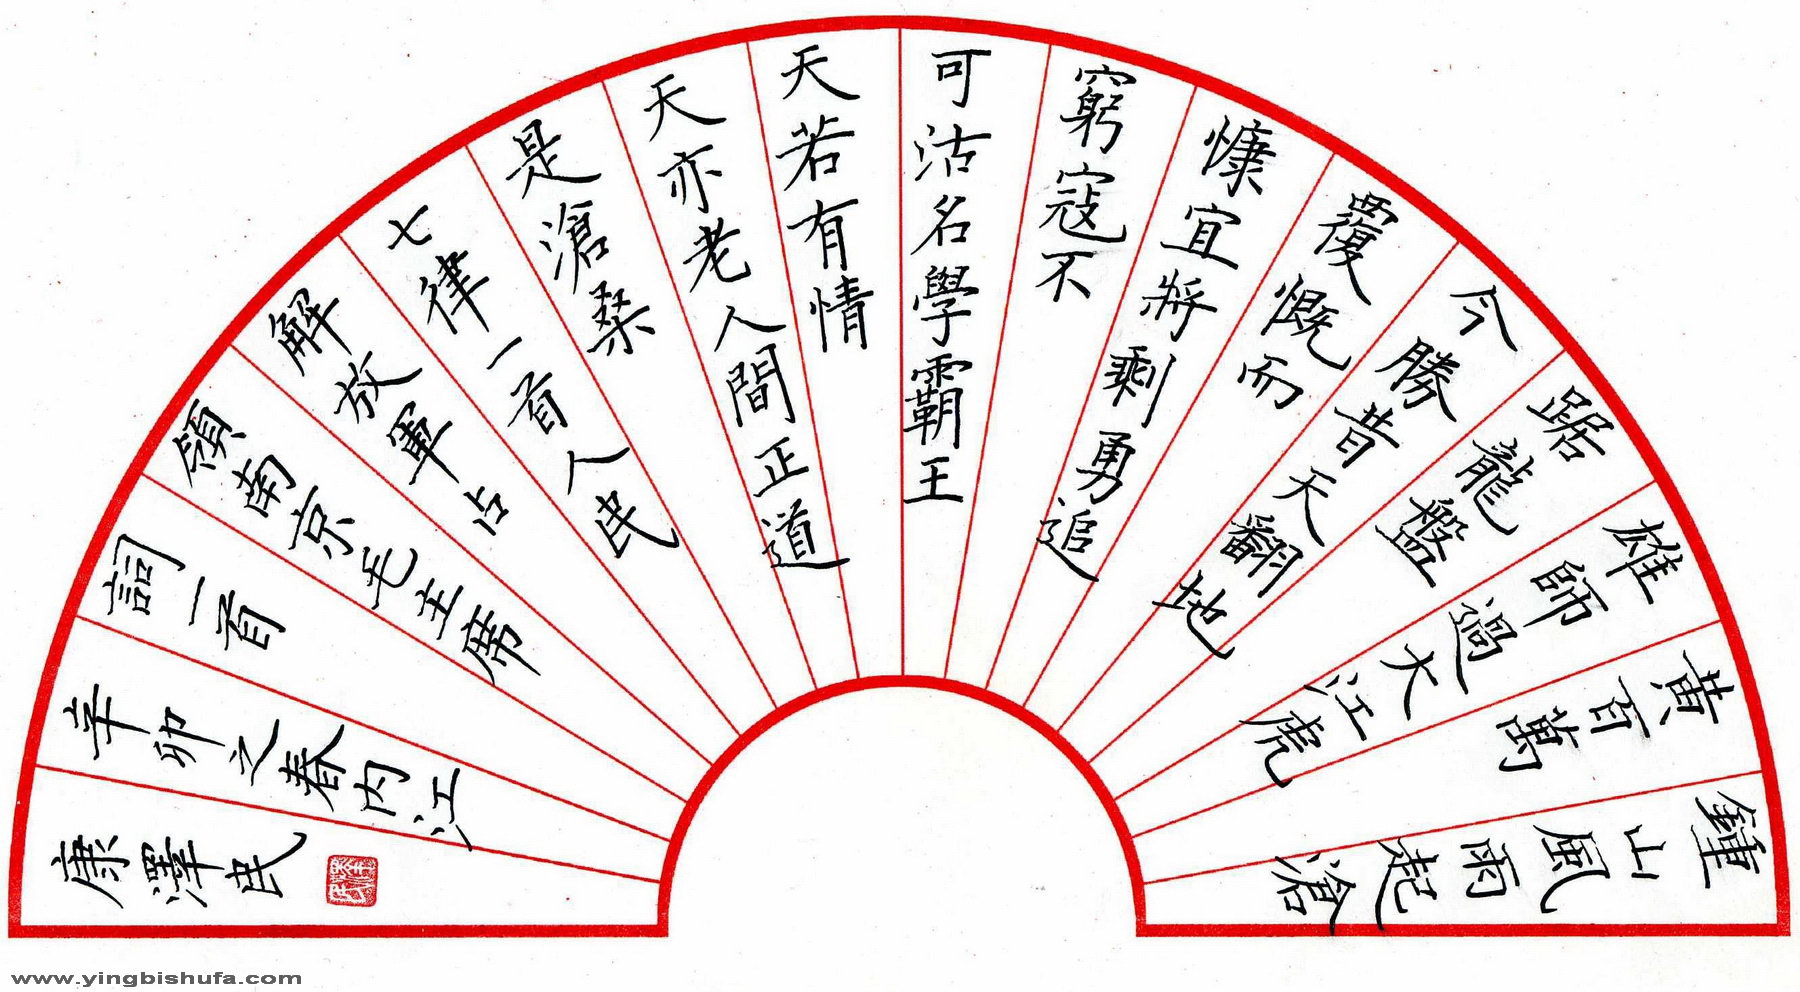 鍾山風雨起滄
黃百萬
雄師過大江虎
踞龍盤
今勝昔天翻地
覆慨而
慷宜將剩勇追
窮寇不
可沽名學霸王
天若有情
天亦老人間正道
是滄桑
七律一首人民
解放軍占
領南京毛主席
詞一首
辛卯之春内江
康澤民
www.yingbishufa.com